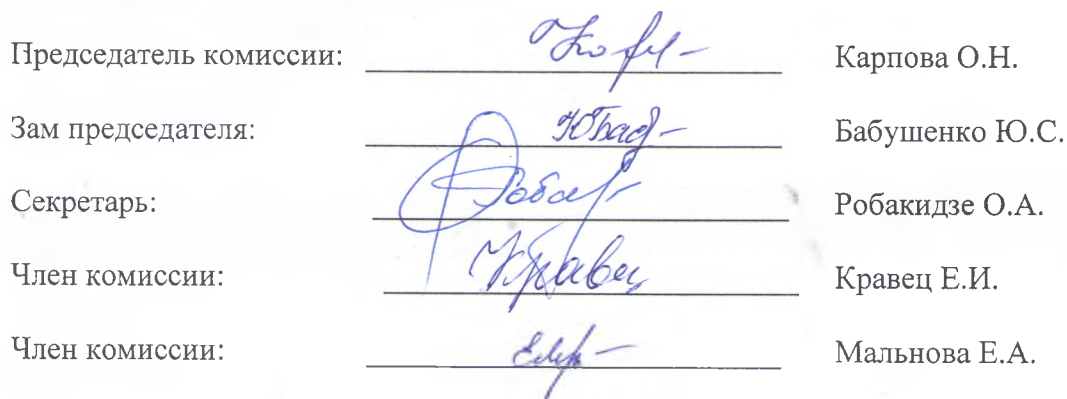 Председатель комиссии: Карпова О.Н.
Зам председателя: Бабушенко Ю.С.
Секретарь: Робакидзе О.А.
Член комиссии: Кравец Кравец Е.И.
Член комиссии: Мальнова Е.А.